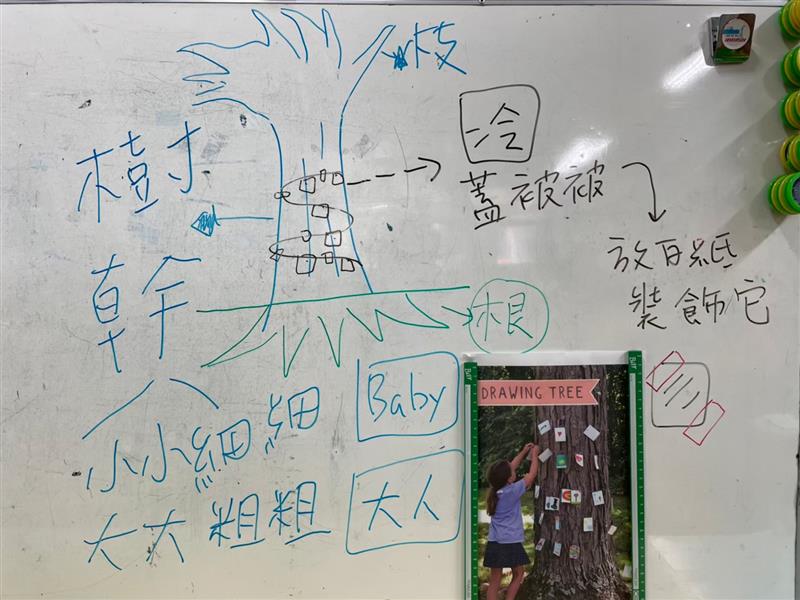 枝
樹
幹
冷
蓋被被
放白紙
裝飾它
根
小小細細
Baby
大大粗粗
大人
DRAWING TREE